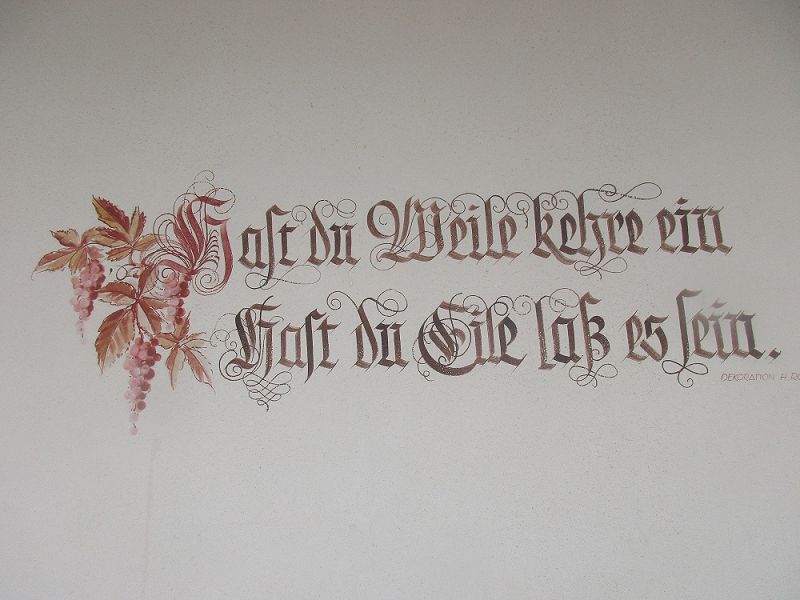 Hast du Weile kehre ein
Hast du Eile laß es sein.
DEKORATION H.